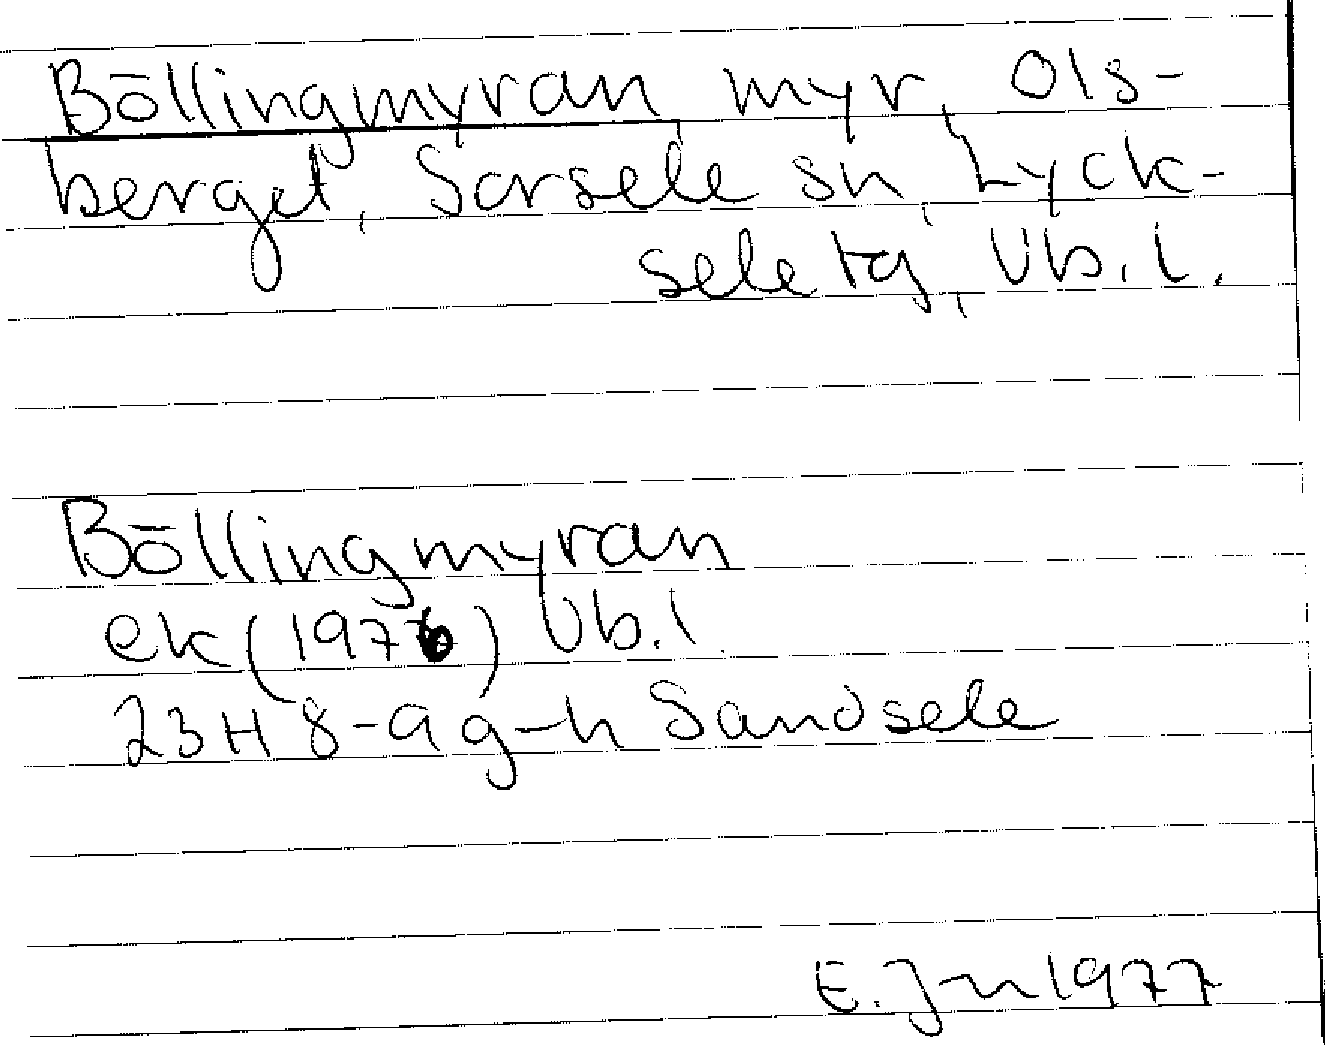 Böllingmyran myr, Ols-
berget, Sorsele sn, Lyck-
sele tg, Vb. l.
Böllingmyran
ek (1976) Vb. l
23H 8-9 g-h Sandsele
E. J-n 1977